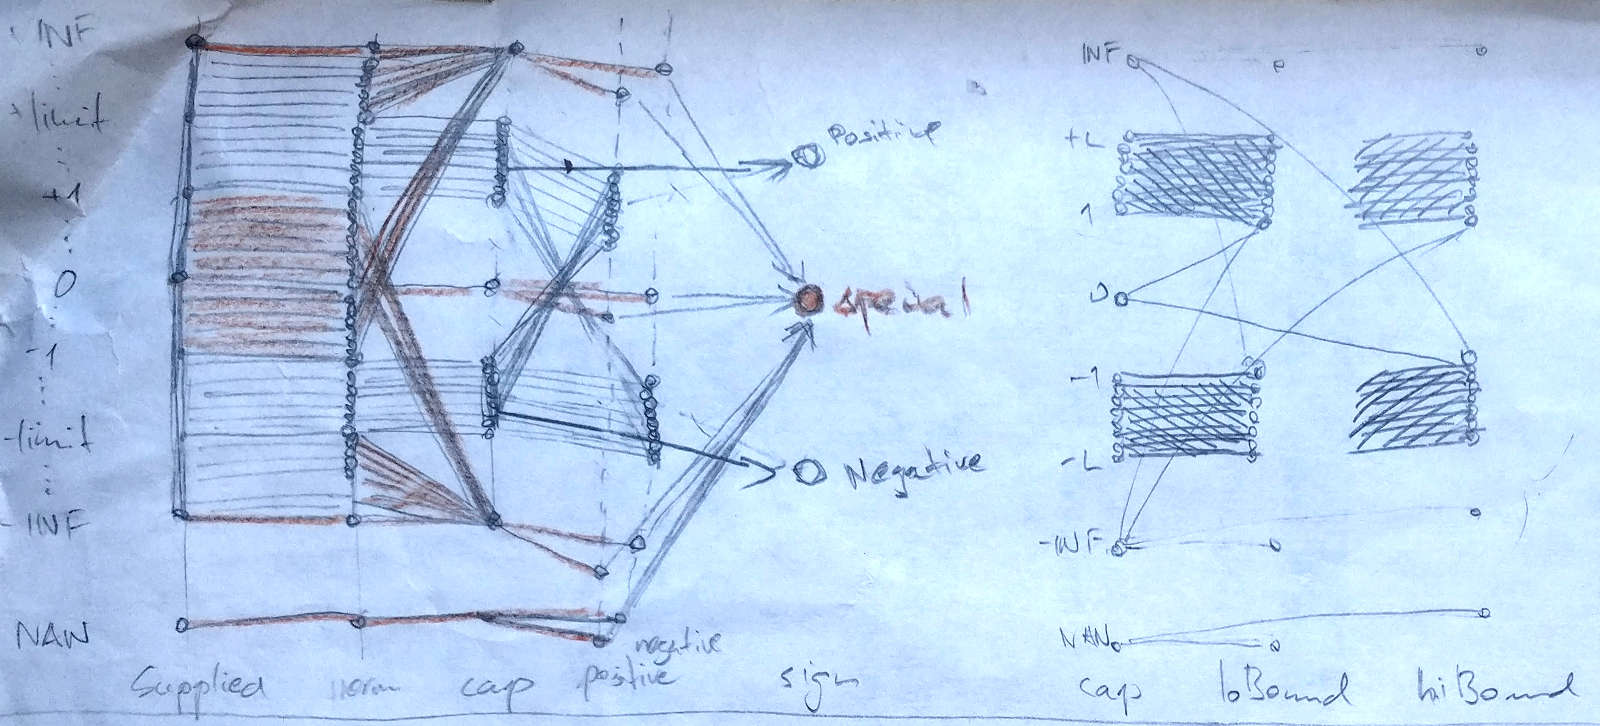 INF
+limit
+1
0
-1
-limit
-INF
NAN
Supplied norm cap positive negative sign
Positive
special
Negative
INF
+L
1
0
-1
-L
-INF
NAN
cap loBound hiBound